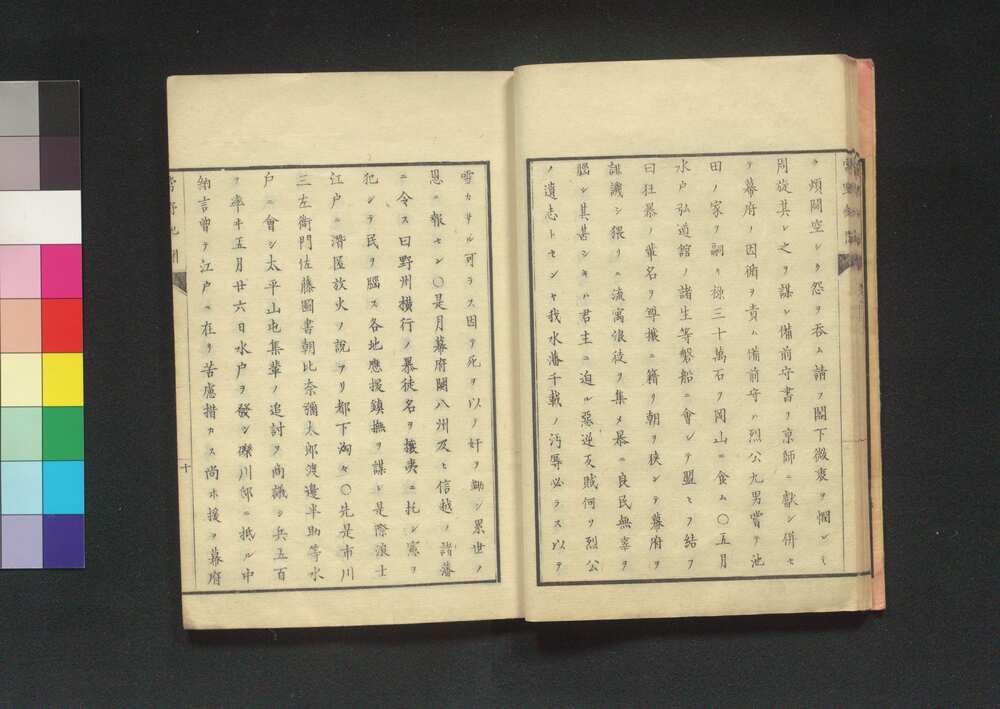 ヲ煩鬪空シク怨ヲ呑ム請フ閣下微衷ヲ憫ミ
周旋其レ之ヲ謀レ備前守書ヲ京師ニ獻シ併セ
テ幕府ノ因循ヲ責ム備前守ハ烈公九男嘗テ池
田ノ家ヲ嗣キ祿三十萬石ヲ岡山ニ食ム〇五月
水戸弘道館ノ諸生等磐船ニ會シテ盟ヒヲ結フ
曰狂暴ノ輩名ヲ尊攘ニ藉リ朝ヲ狹シテ幕府ヲ
誹譏シ猥リニ流寓浪徒ヲ集メ暴ニ良民無辜ヲ
惱シ其甚シキハ君主ニ迫ル惡逆反賊何ソ烈公
ノ遺志トセンヤ我水藩千載ノ汚辱必ラス以テ
雪カサル可ラス因テ死ヲ以ノ奸ヲ鋤シ累世ノ
恩ニ報セン〇是月幕府關八州及ヒ信越ノ諸藩
ニ令ス曰野州横行ノ暴徒名ヲ攘夷ニ托シ憲ヲ
犯シテ民ヲ腦ス各地應援鎮撫ヲ謀ト是際浪士
江戸ニ潛匿放火ノ説アリ都下洶々〇先是市川
三左衛門佐藤圖書朝比奈彌太郎渡邊半助等水
戸ニ會シ太平山屯集輩ノ追討ヲ商議シ兵五百
ヲ率ヰ五月廿六日水戸ヲ發シ礫川邸ニ抵ル中
納言曾テ江戸ニ在リ苦慮措カス尚ホ援ヲ幕府
十